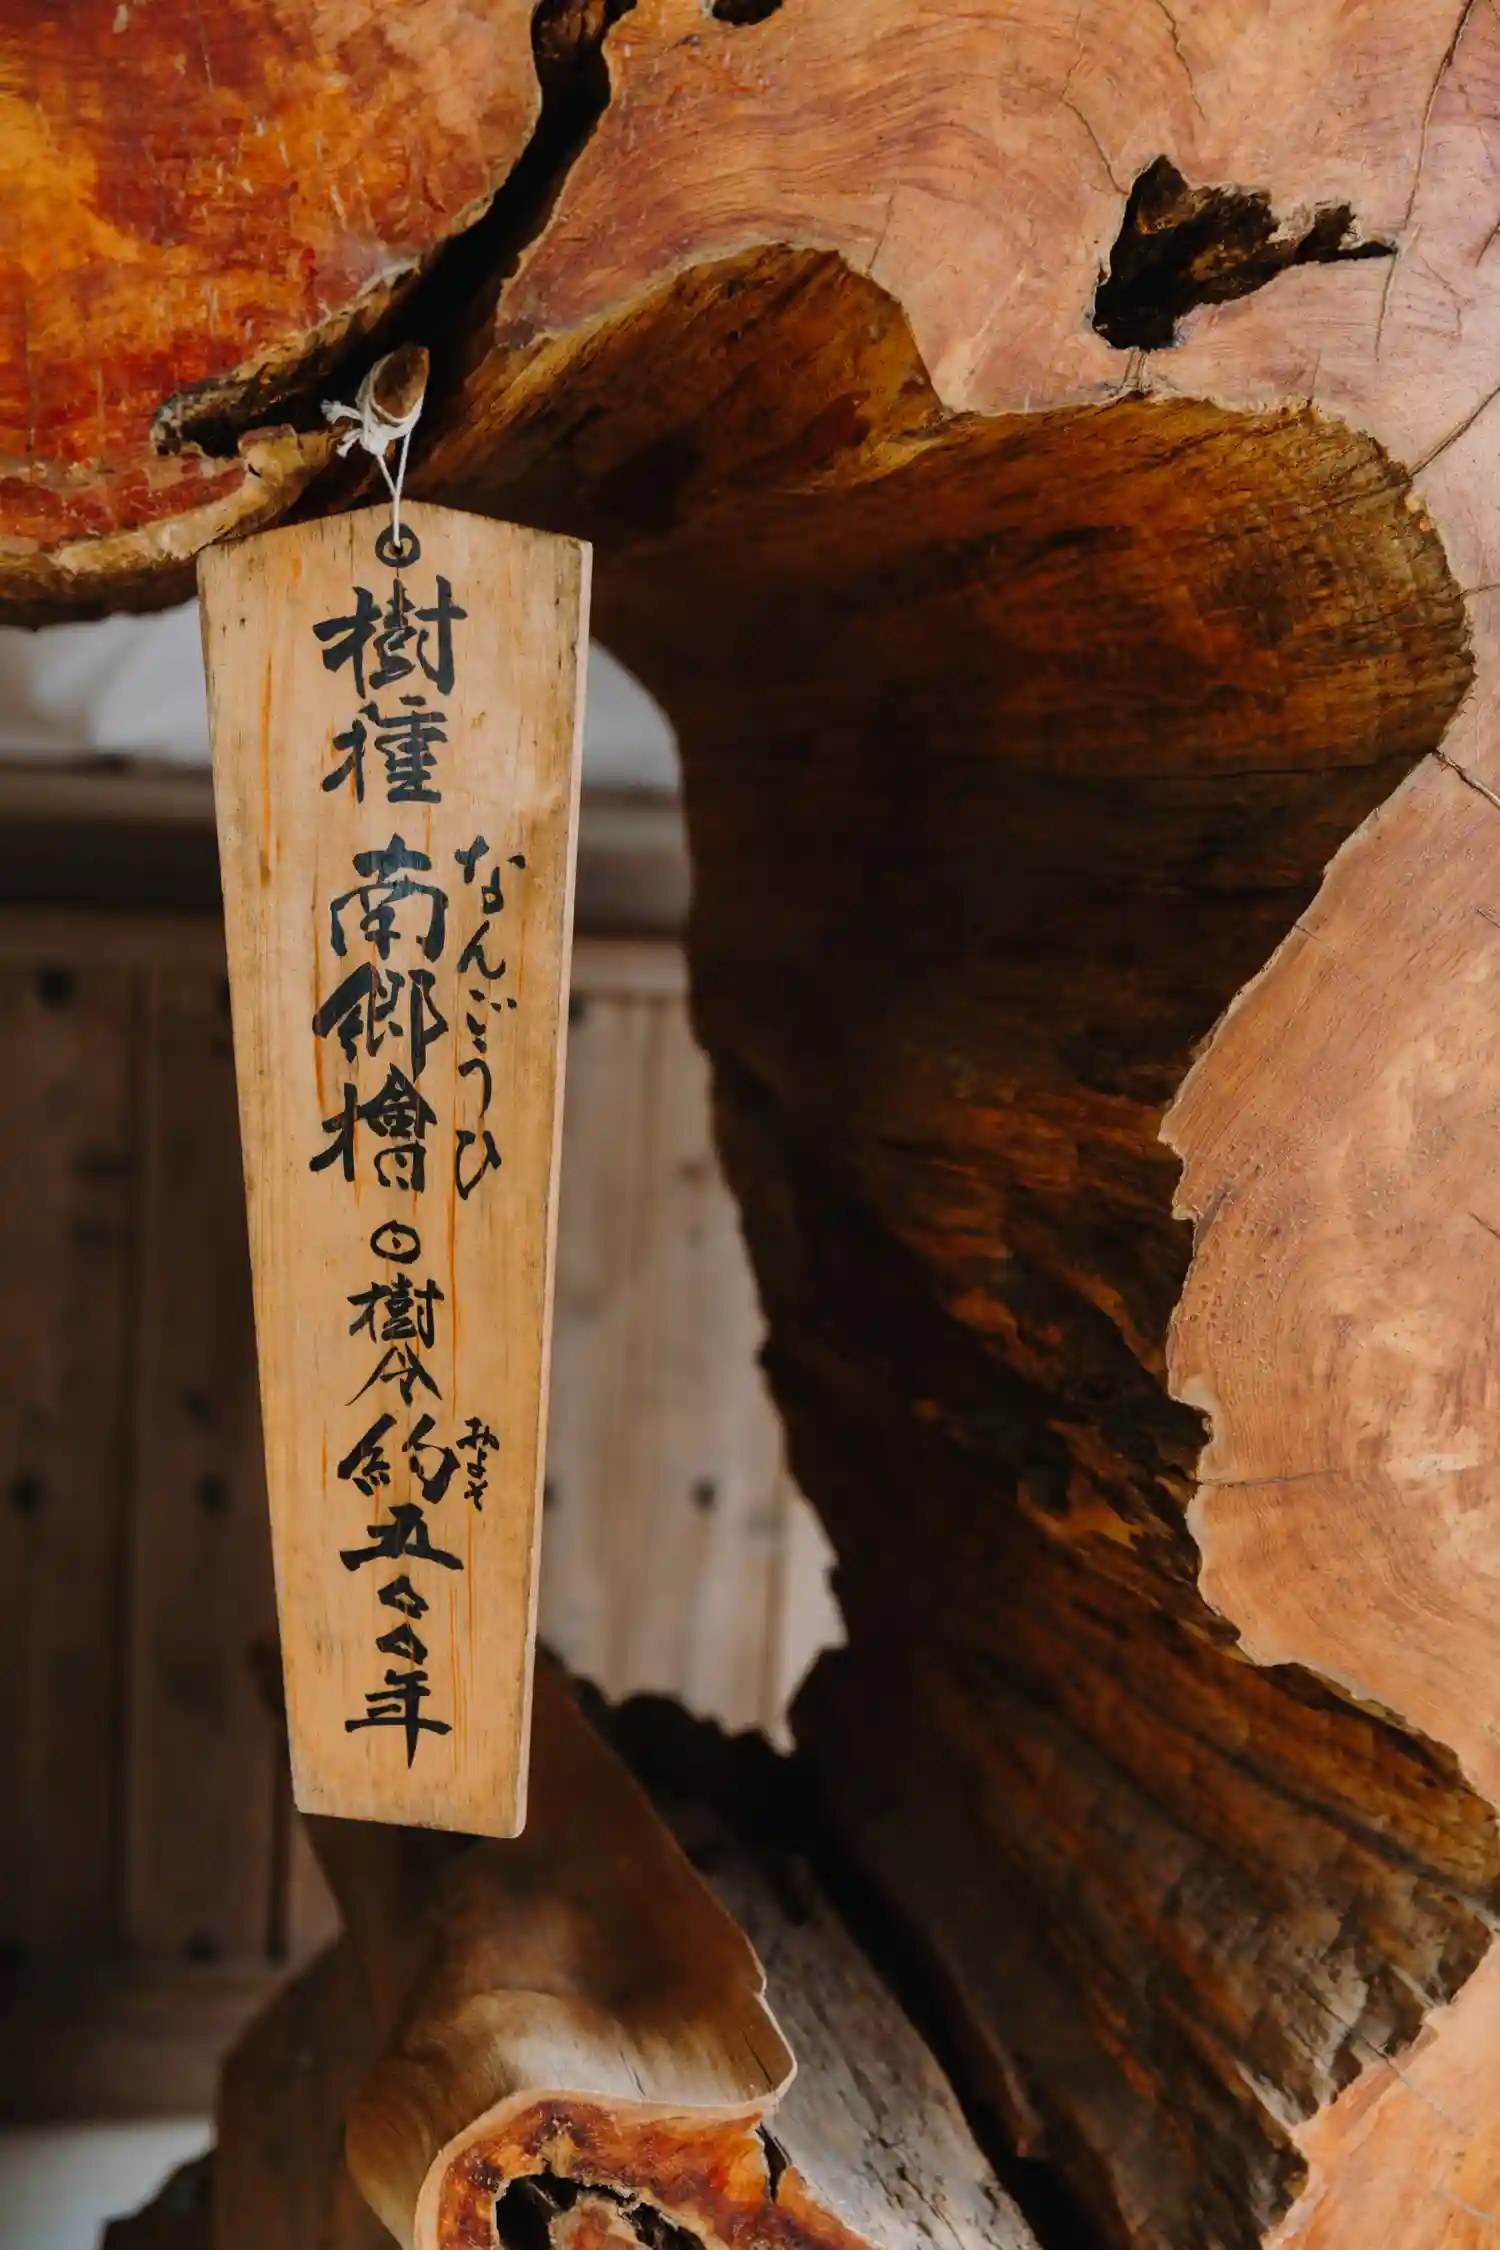 ◎樹種 南郷檜 ◎樹令約五〇〇年
なんごうひ
およそ